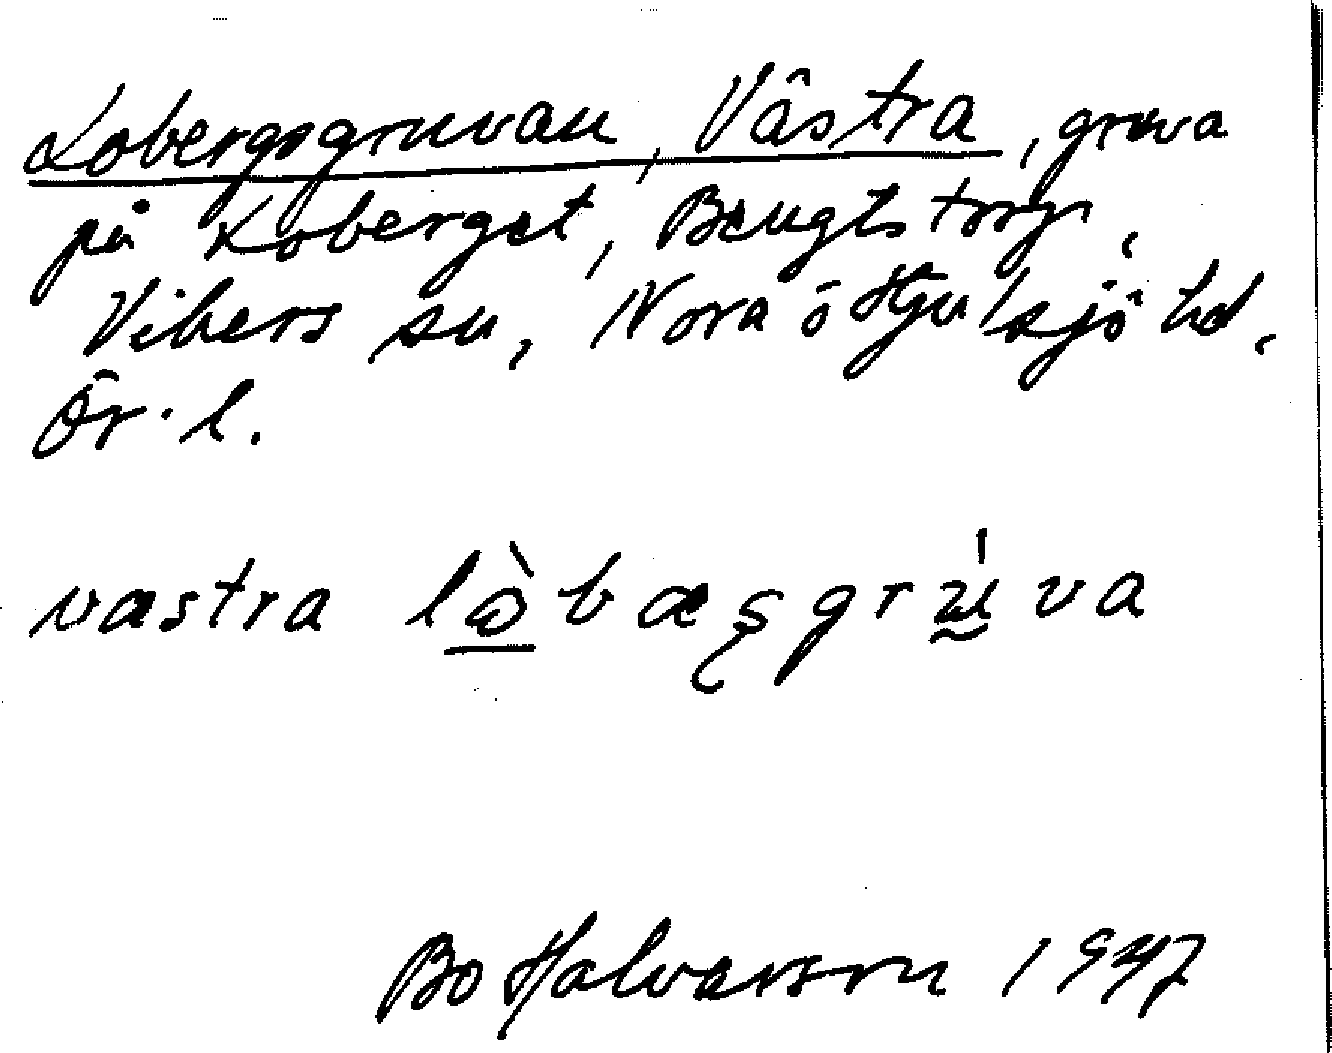 Lobergsgruvan, Västra, gruva
på Koberget, Bengtstorp,
Vikers sn, Nora o Hjulsjö hd.
Ör. l.
västra lòbæʂgrúva
Bo Halvarson 1947